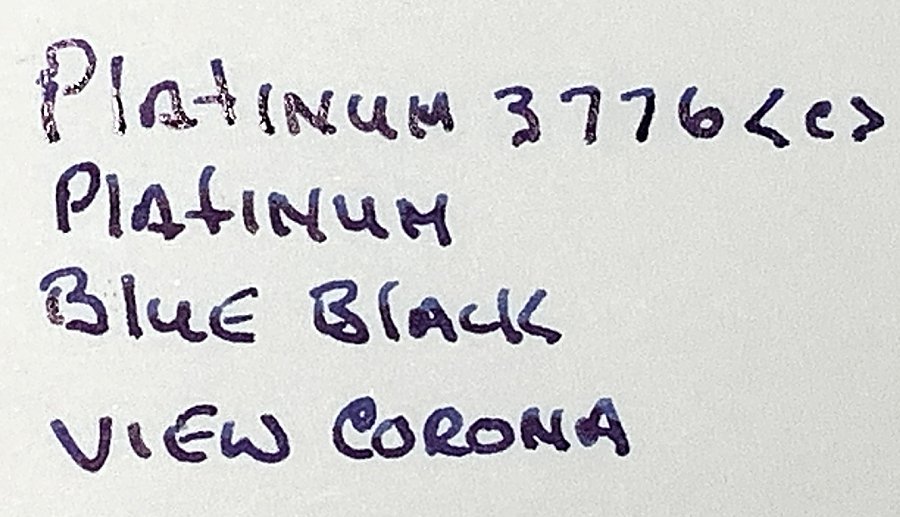 Platinum 3776 <c>
Platinum
Blue Black
View Corona